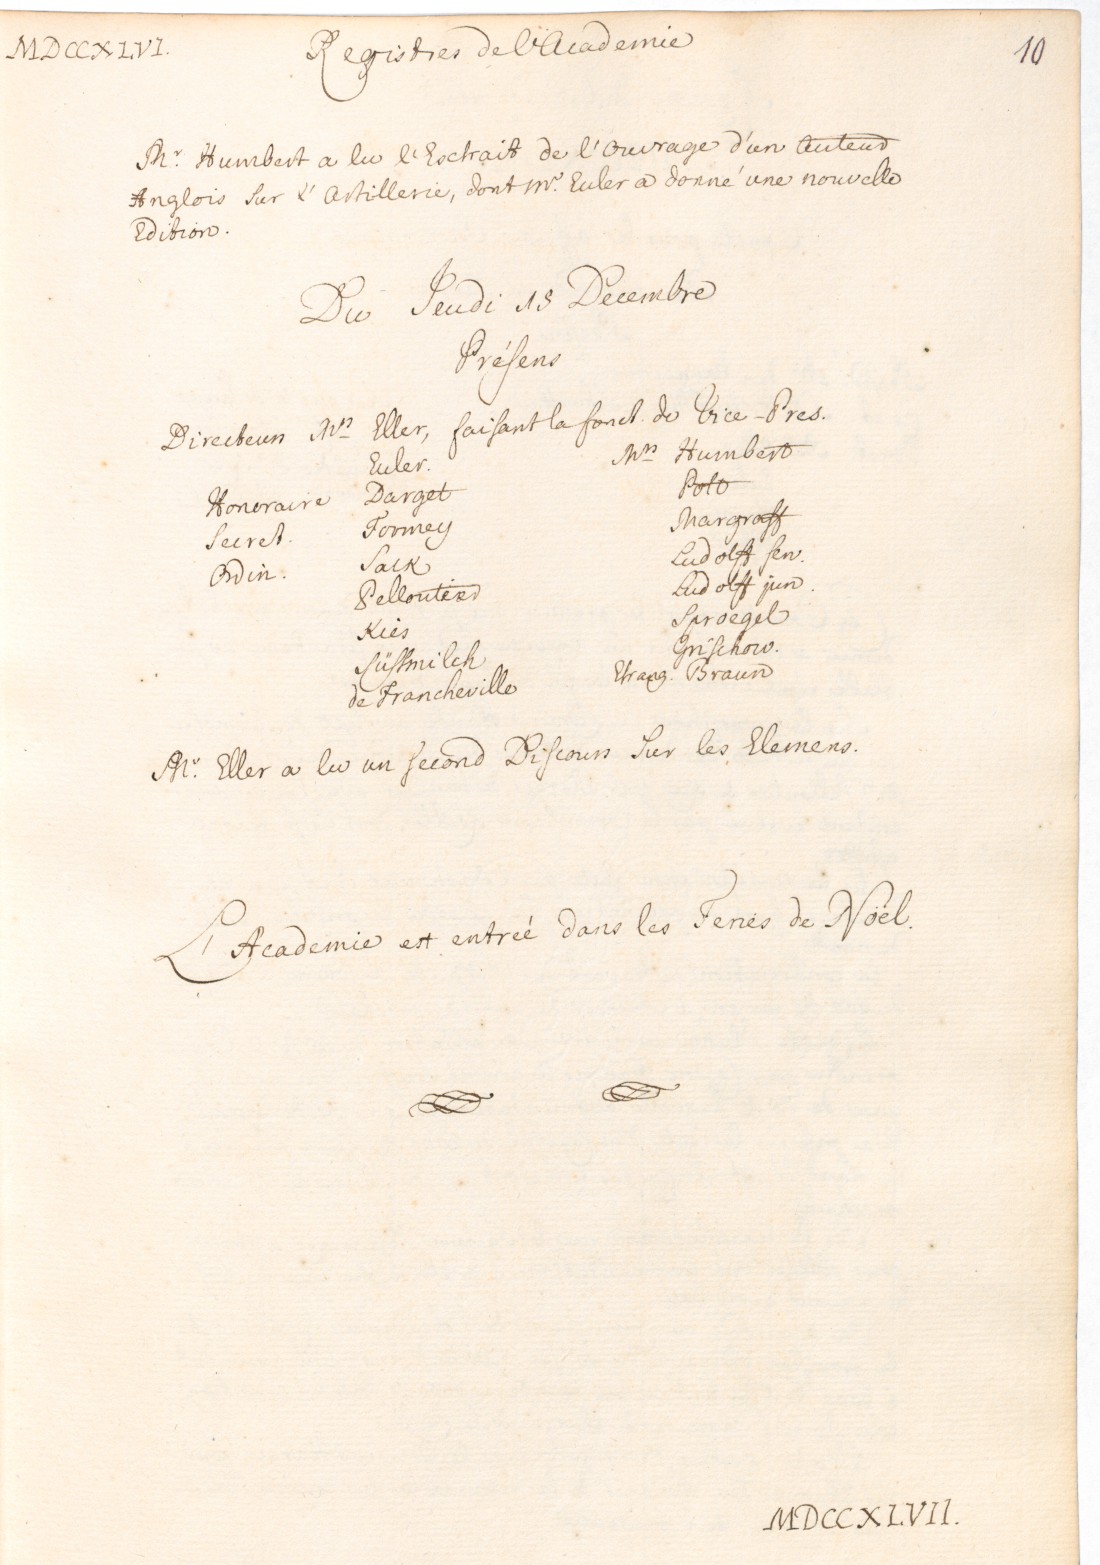 MDCCXLVI.
Registres de l'Academie
10
Mr. Humbert a lu l'Extrait de l'Ouvrage d'un Auteur
Anglois sur l'Artillerie, dont Mr. Euler a donné une nouvelle
Edition.
Du Jeudi 15 Decembre
Présens
Directeurs Mrs Eller, faisant la fonct. de Vice-Pres.
Euler.
Honoraire Darget
Secret. Formey
Ordin. Sack
Pelloutier
Kies
Süssmilch
de Francheville
Mrs Humbert
Pott
Margraff
Ludolff sen.
Ludolff jun.
Sproegel
Grischow.
Etrang. Braun
Mr. Eller a lu un second Discours sur les Elemens.
L'Academie est entreé dans les Feries de Noël.
MDCCXLVII.